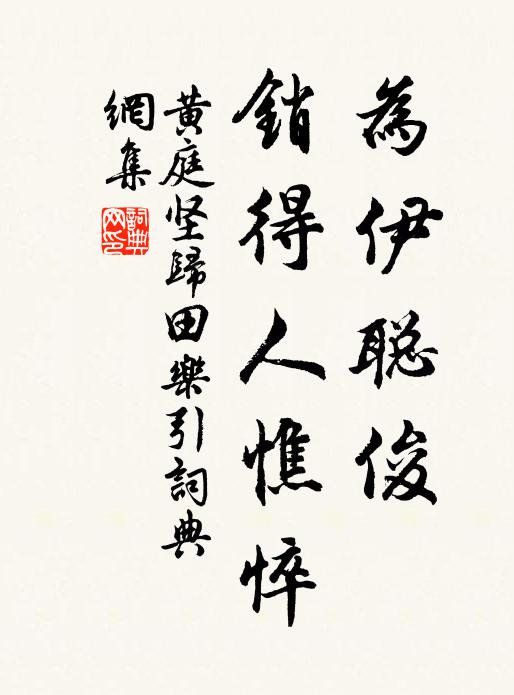 為伊聪俊
銷得人憔悴
黄庭坚歸田樂引詞典
網集
詞典
网印